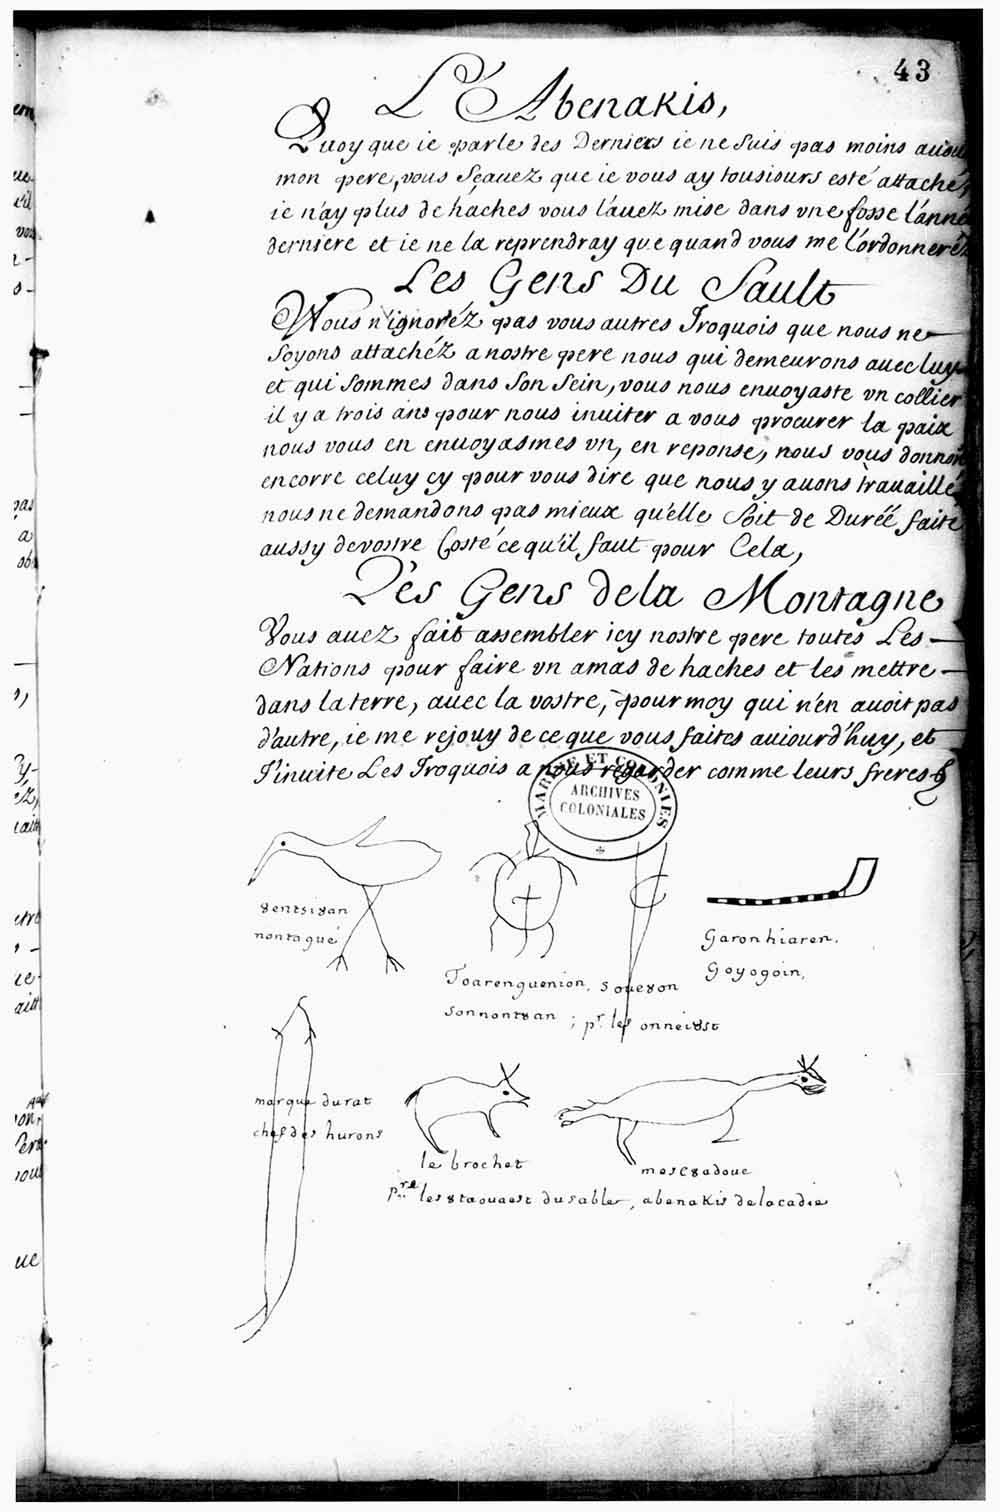 43
L'Abenakis,
Quoy que ie parle des Derniers ie ne suis pas moins
mon pere, vous sçauez que ie vous ay tousiours esté attaché,
ie n'ay plus de haches vous l'auez mise dans vne fosse l'anné
derniere et ie ne la reprendray que quand vous me l'ordonneréz
Les Gens Du Sault
Vous n'ignoréz pas vous autres Iroquois que nous ne
soyons attachéz a nostre pere nous qui demeurons auec luy
et qui sommes dans son sein, vous nous enuoyaste vn collier
il y a trois ans pour nous inuiter a vous procurer la paix
nous vous en enuoyasmes vn, en reponse, nous vous donnons
encorre celuy cy pour vous dire que nous y auons trauaillé
nous ne demandons pas mieux qu'elle soit de Duréé faite
aussy de vostre Costé ce qu'il faut pour Cela,
Les Gens de la Montagne
Vous auez fait assembler icy nostre pere toutes Les
Nations pour faire vn amas de haches et les mettre
dans la terre, auec la vostre, pour moy qui n'en auoit pas
d'autre, ie me rejouy de ce que vous faites auiourd'huy, et
J'inuite Les Iroquois a nous regarder comme leurs freres
MARINE ET COLONIES
ARCHIVES
COLONIALES
8entsi8an
montagué
Toarenguenion,
sonnont8an
soue8on
; pr. les onnei8st
Garonhiaren,
Goyogoin,
marque du rat
chef des hurons
le brochet
mes8adoue
pre. les 8taouaest du sable, abenakis de lacadie